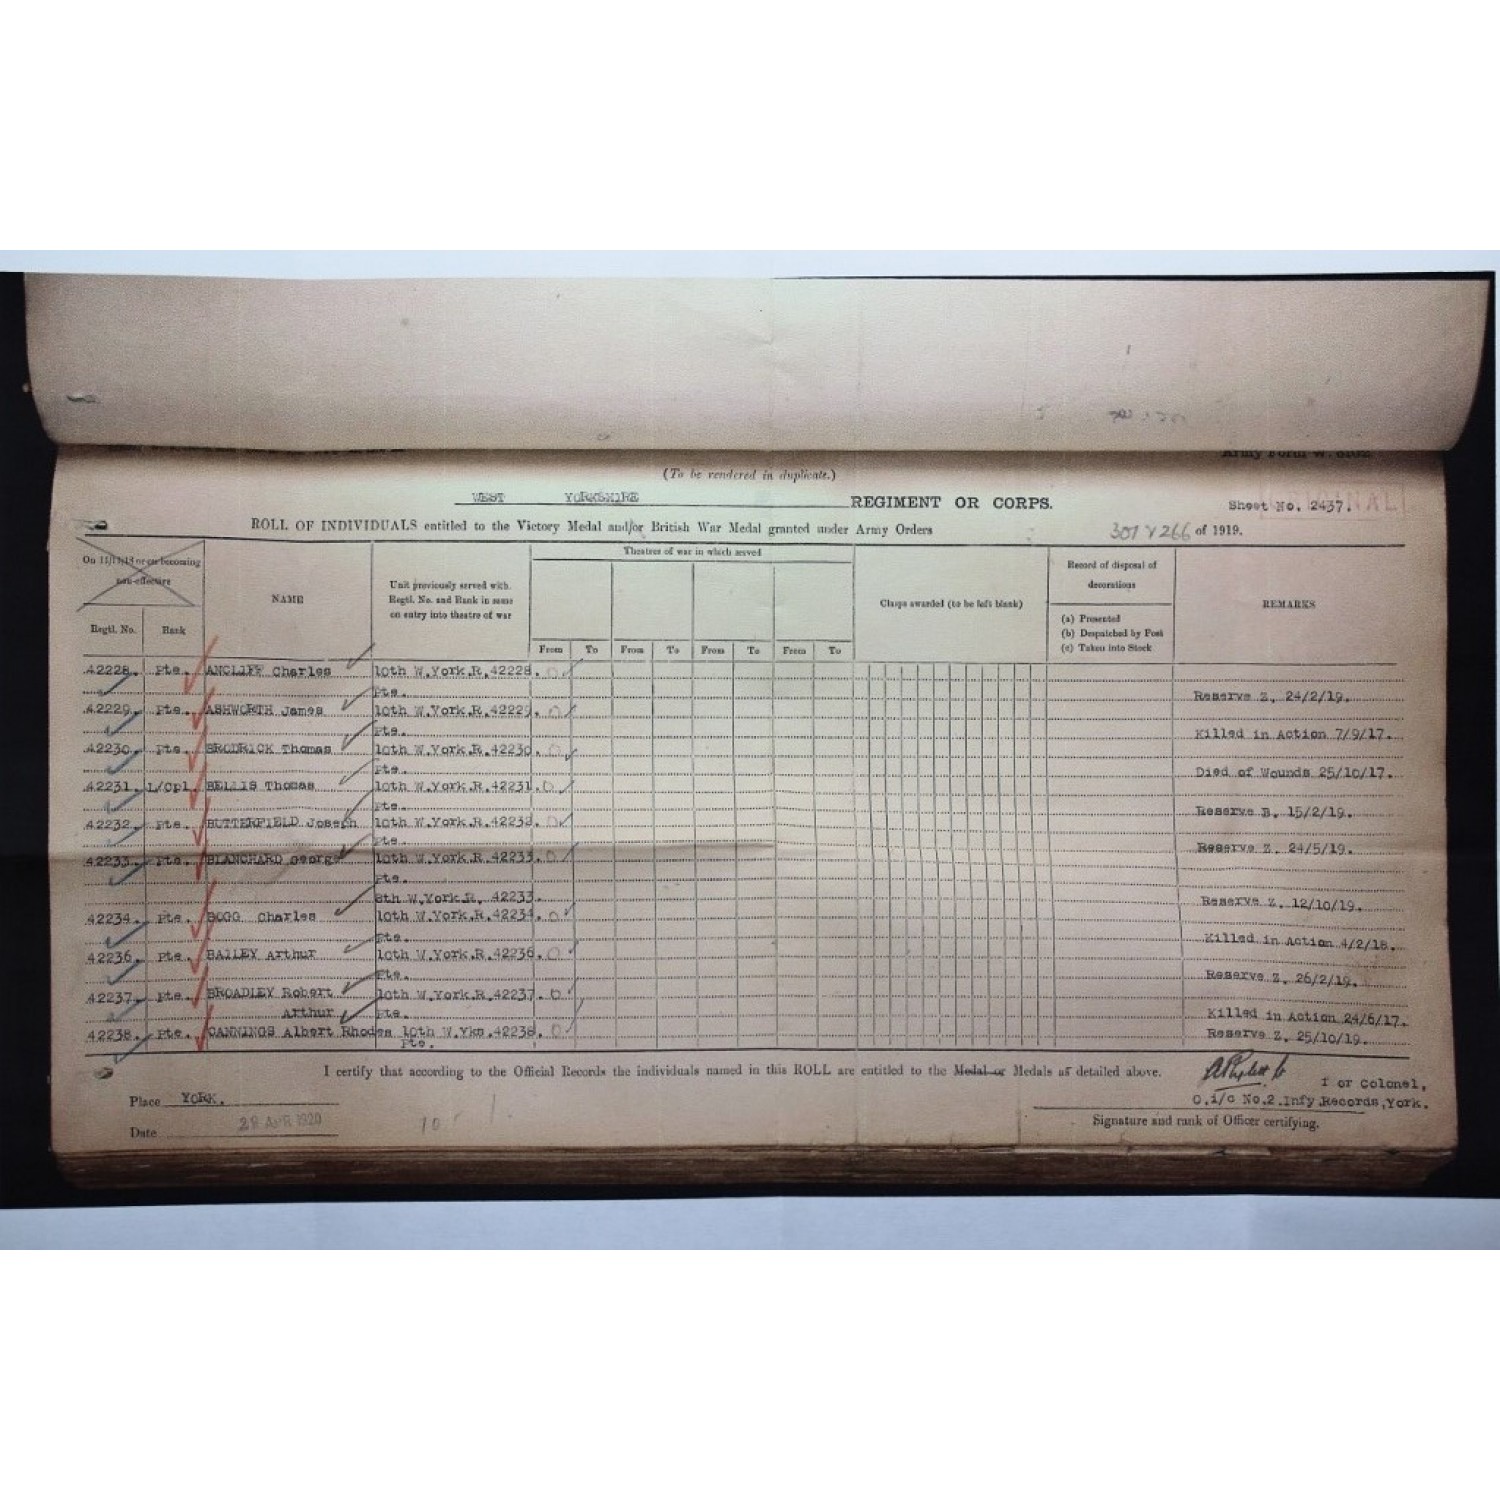 Army Form W. 5102
(To be rendered in duplicate.)
WEST YORKSHIRE REGIMENT OR CORPS.
Sheet No. 2437.
ROLL OF INDIVIDUALS entitled to the Victory Medal and/or British War Medal granted under Army Orders 301 & 266 of 1919.
On 11/11/18 or on becoming non-effective
Regtl. No. Rank
NAME
Unit previously served with.
Regtl. No. and Rank in same
on entry into theatre of war
Theatres of war in which served
From To From To From To From To
Clasps awarded (to be left blank)
Record of disposal of
decorations
(a) Presented
(b) Despatched by Post
(c) Taken into Stock
REMARKS
42228. Pte. ANCLIFF Charles 10th W.York.R.42228.
Pte. Reserve Z. 24/2/19.
42229. Pte. ASHWORTH James 10th W.York.R.42229.
Pte. Killed in Action 7/9/17.
42230. Pte. BRODRICK Thomas 10th W.York.R.42230.
Pte. Died of Wounds 25/10/17.
42231. L/Cpl. BELLIS Thomas 10th W.York.R.42231.
Pte. Reserve B. 15/2/19.
42232. Pte. BUTTERFIELD Joseph 10th W.York.R.42232.
Pte. Reserve Z. 24/5/19.
42233. Pte. BLANCHARD George 10th W.York.R.42233.
Pte.
8th W.York.R. 42233. Reserve Z. 12/10/19.
42234. Pte. BOGG Charles 10th W.York.R.42234.
Pte. Killed in Action 4/2/18.
42236. Pte. BAILEY Arthur 10th W.York.R.42236.
Pte. Reserve Z. 26/2/19.
42237. Pte. BROADLEY Robert 10th W.York.R.42237.
Arthur Pte. Killed in Action 24/6/17.
42238. Pte. CANNINGS Albert Rhodes 10th W.Yks.42238. Reserve Z. 25/10/19.
Pte.
I certify that according to the Official Records the individuals named in this ROLL are entitled to the Medal or Medals as detailed above.
for Colonel,
Place YORK.
O.i/c No.2.Infy.Records,York.
Date 28 APR 1920
10
Signature and rank of Officer certifying.